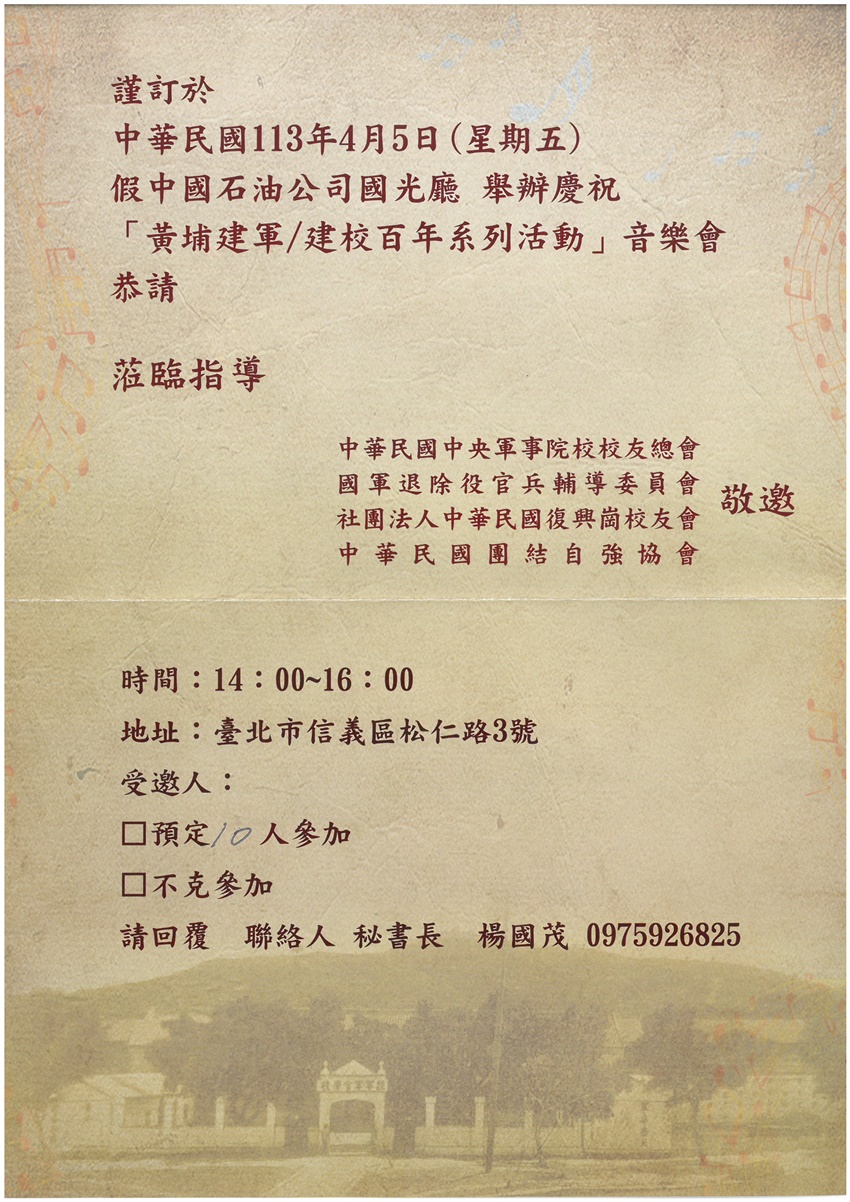 謹訂於
中華民國113年4月5日(星期五)
假中國石油公司國光廳 舉辦慶祝
「黃埔建軍/建校百年系列活動」音樂會
恭請
蒞臨指導
中華民國中央軍事院校校友總會
國軍退除役官兵輔導委員會
社團法人中華民國復興崗校友會
中華民國團結自強協會
敬邀
時間：14：00~16：00
地址：臺北市信義區松仁路3號
受邀人：
□預定10人參加
□不克參加
請回覆 聯絡人 秘書長 楊國茂 0975926825